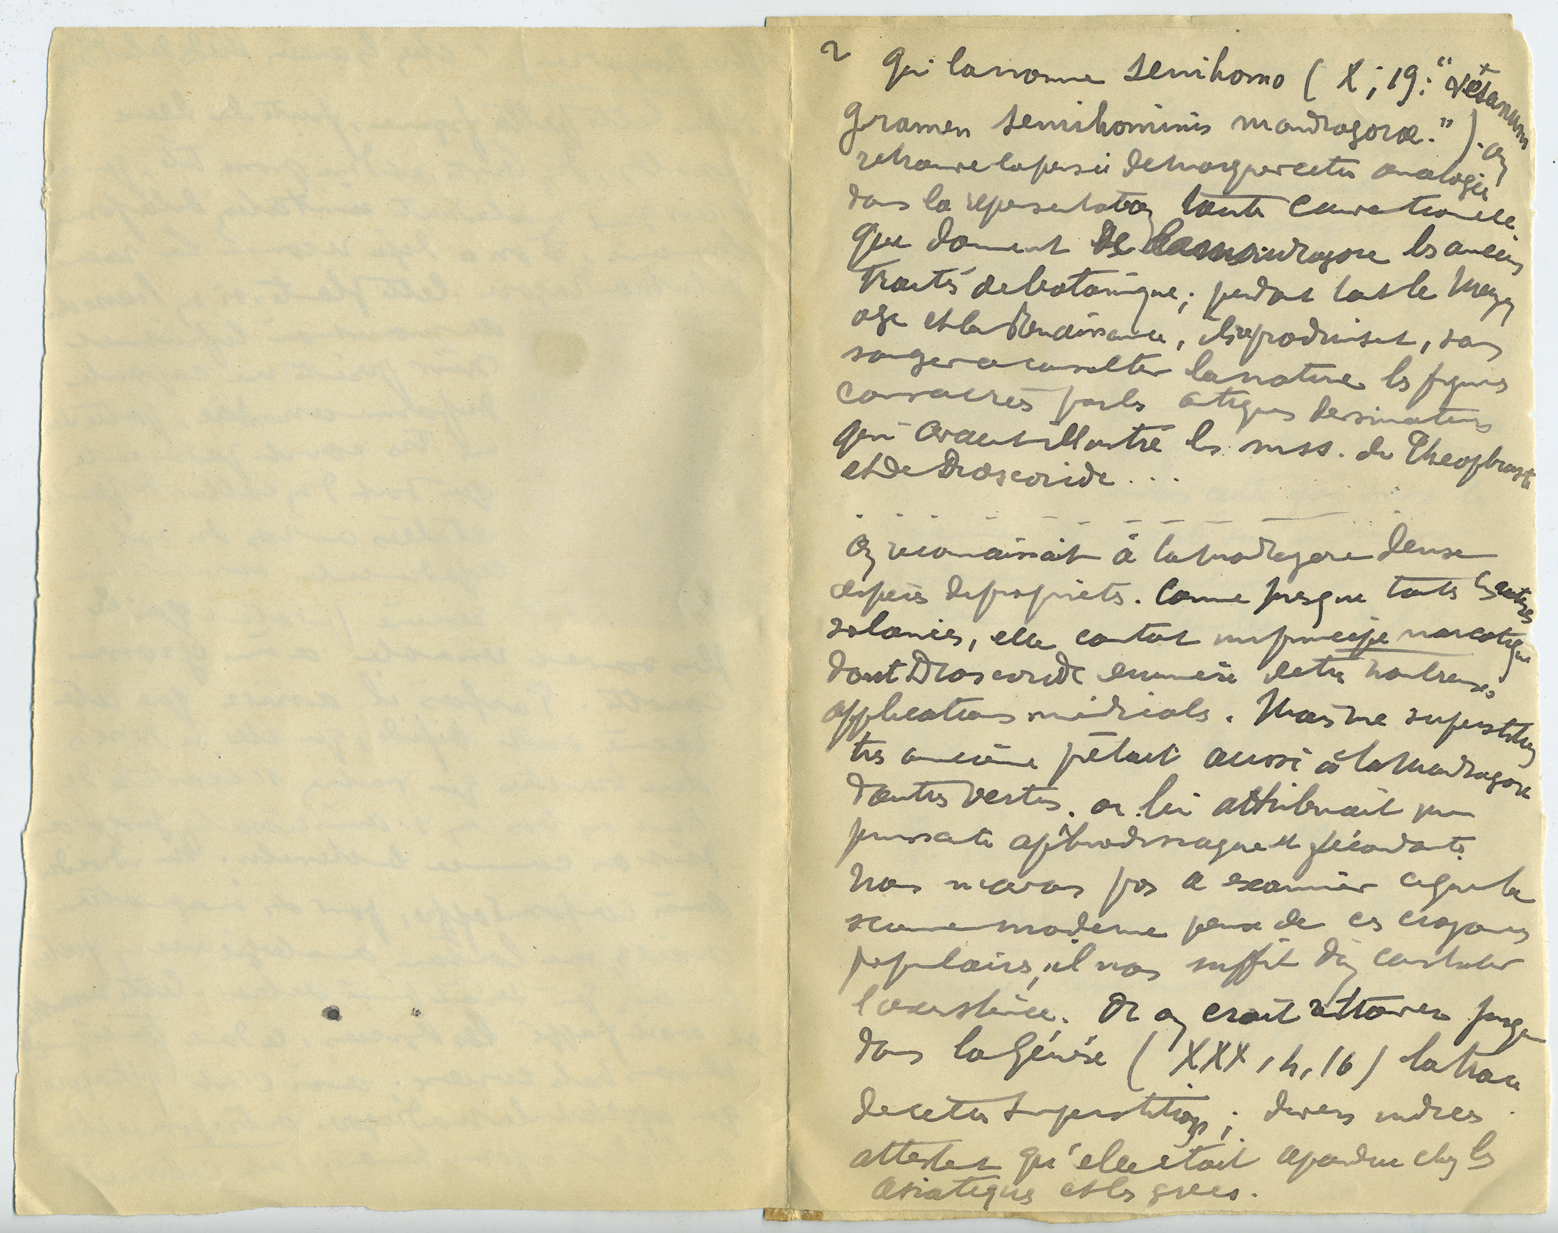 2 qui la nomme semihomo (X, 19: "vesanum
gramen semihominis mandragorae."). on
retrouve la pensée de marquer cette analogie
dans la représentation toute conventionnelle
que donnent de la mandragore les anciens
traités de botanique; pendant tout le Moyen
age et la Renaissance, ils reproduisent, sans
songer a consulter la nature les figures
consacrées par les antiques dessinateurs
qui avaient illustré les mss. de Theophraste
et de Dioscoride . . .
on reconnaissait à la mandragore deux
espèces de propriétés. Comme presque toutes les autres
solanées, elle contient un principe narcotique
dont Dioscoride enumère de très nombreuses
applications médicales. Mais une superstition
très ancienne prêtait aussi à la Mandragore
d'autres vertus. on lui attribuait une
puissance aphrodisiaque et fécondante.
Nous n'avons pas a examiner ce que la
science moderne pense de ces croyances
populaires, il nous suffit d'en constater
l'existence. Or on croit retrouver jusque
dans la Génèse (XXX, 14, 16) la trace
de cette superstition; divers indices
attestent qu'elle était répandue chez les
Asiatiques et les grecs.